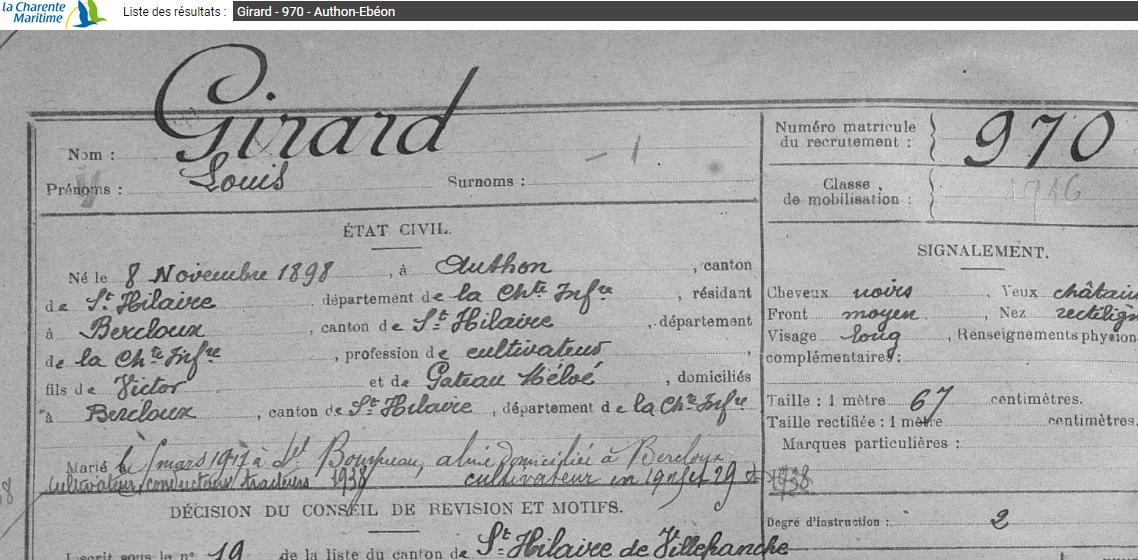 la Charente
Maritime
Liste des résultats : Girard - 970 - Authon-Ebéon
Nom : Girard
Prénoms : Louis Surnoms :
Numéro matricule
du recrutement : 970
Classe
de mobilisation : 1916
ÉTAT CIVIL.
Né le 8 Novembre 1898, à Authon, canton
de St Hilaire département de la Chte Infre, résidant
à Bercloux, canton de St Hilaire, département
de la Chte Infre, profession de cultivateur,
fils de Victor et de Gateau Héloé, domiciliés
à Bercloux, canton de St Hilaire, département de la Chte Infre
Marié mars 1917 à domiciliée à Bercloux
cultivateur conducteur tracteurs 1938 cultivateur en 29 et 1938
SIGNALEMENT.
Cheveux noirs, Yeux châtain
Front moyen, Nez rectilign
Visage long, Renseignements physion
complémentaires :
Taille : 1 mètre 67 centimètres.
Taille rectifiée : 1 mètre centimètres.
Marques particulières :
Degré d'instruction : 2
DÉCISION DU CONSEIL DE REVISION ET MOTIFS.
Inscrit sous le n° 19 de la liste du canton de St Hilaire de Villefranche